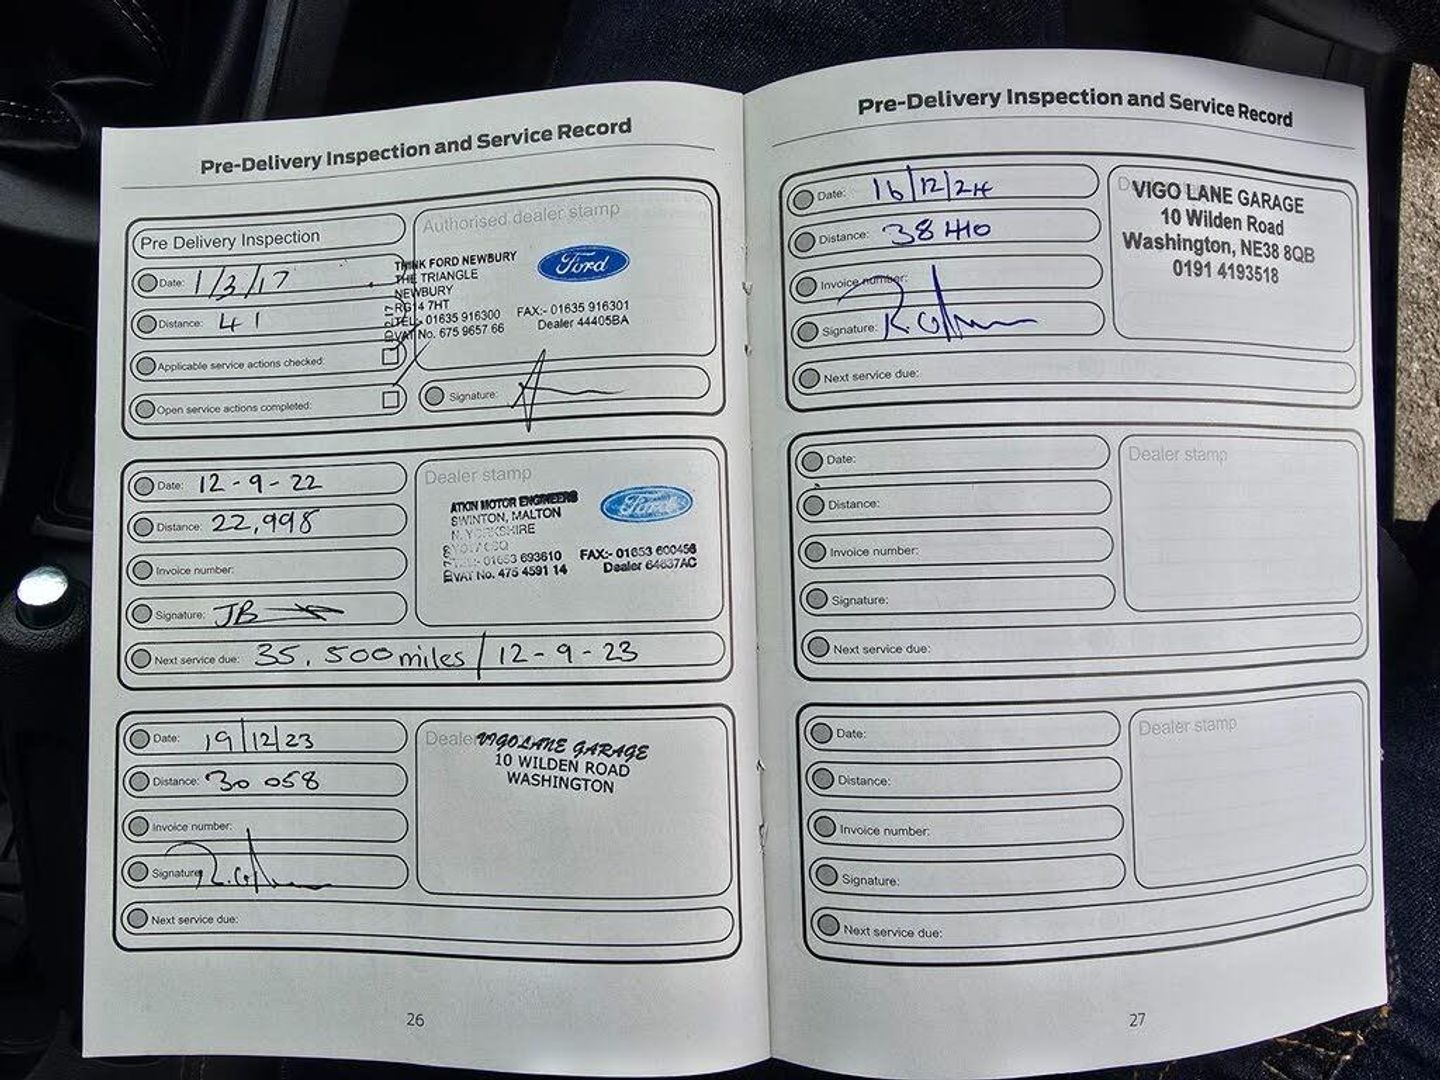 Pre-Delivery Inspection and Service Record
Pre Delivery Inspection
Date: 1/3/17
Distance: 41
Applicable service actions checked:
Open service actions completed:
Authorised dealer stamp
THINK FORD NEWBURY
THE TRIANGLE
NEWBURY
RG14 7HT
TEL:- 01635 916300 FAX:- 01635 916301
VAT No. 675 9657 66 Dealer 44405BA
Ford
Signature:
Date: 12-9-22
Distance: 22,998
Invoice number:
Signature: JB
Next service due: 35,500 miles / 12-9-23
Dealer stamp
ATKIN MOTOR ENGINEERS
SWINTON, MALTON
N. YORKSHIRE
01653 693610 FAX:- 01653 600456
VAT No. 475 4591 14 Dealer 64637AC
Ford
Date: 19/12/23
Distance: 30 058
Invoice number:
Signature:
Next service due:
Dealer
VIGO LANE GARAGE
10 WILDEN ROAD
WASHINGTON
26
Pre-Delivery Inspection and Service Record
Date: 16/12/24
Distance: 38410
Invoice number:
Signature:
Next service due:
VIGO LANE GARAGE
10 Wilden Road
Washington, NE38 8QB
0191 4193518
Date:
Distance:
Invoice number:
Signature:
Next service due:
Dealer stamp
Date:
Distance:
Invoice number:
Signature:
Next service due:
Dealer stamp
27